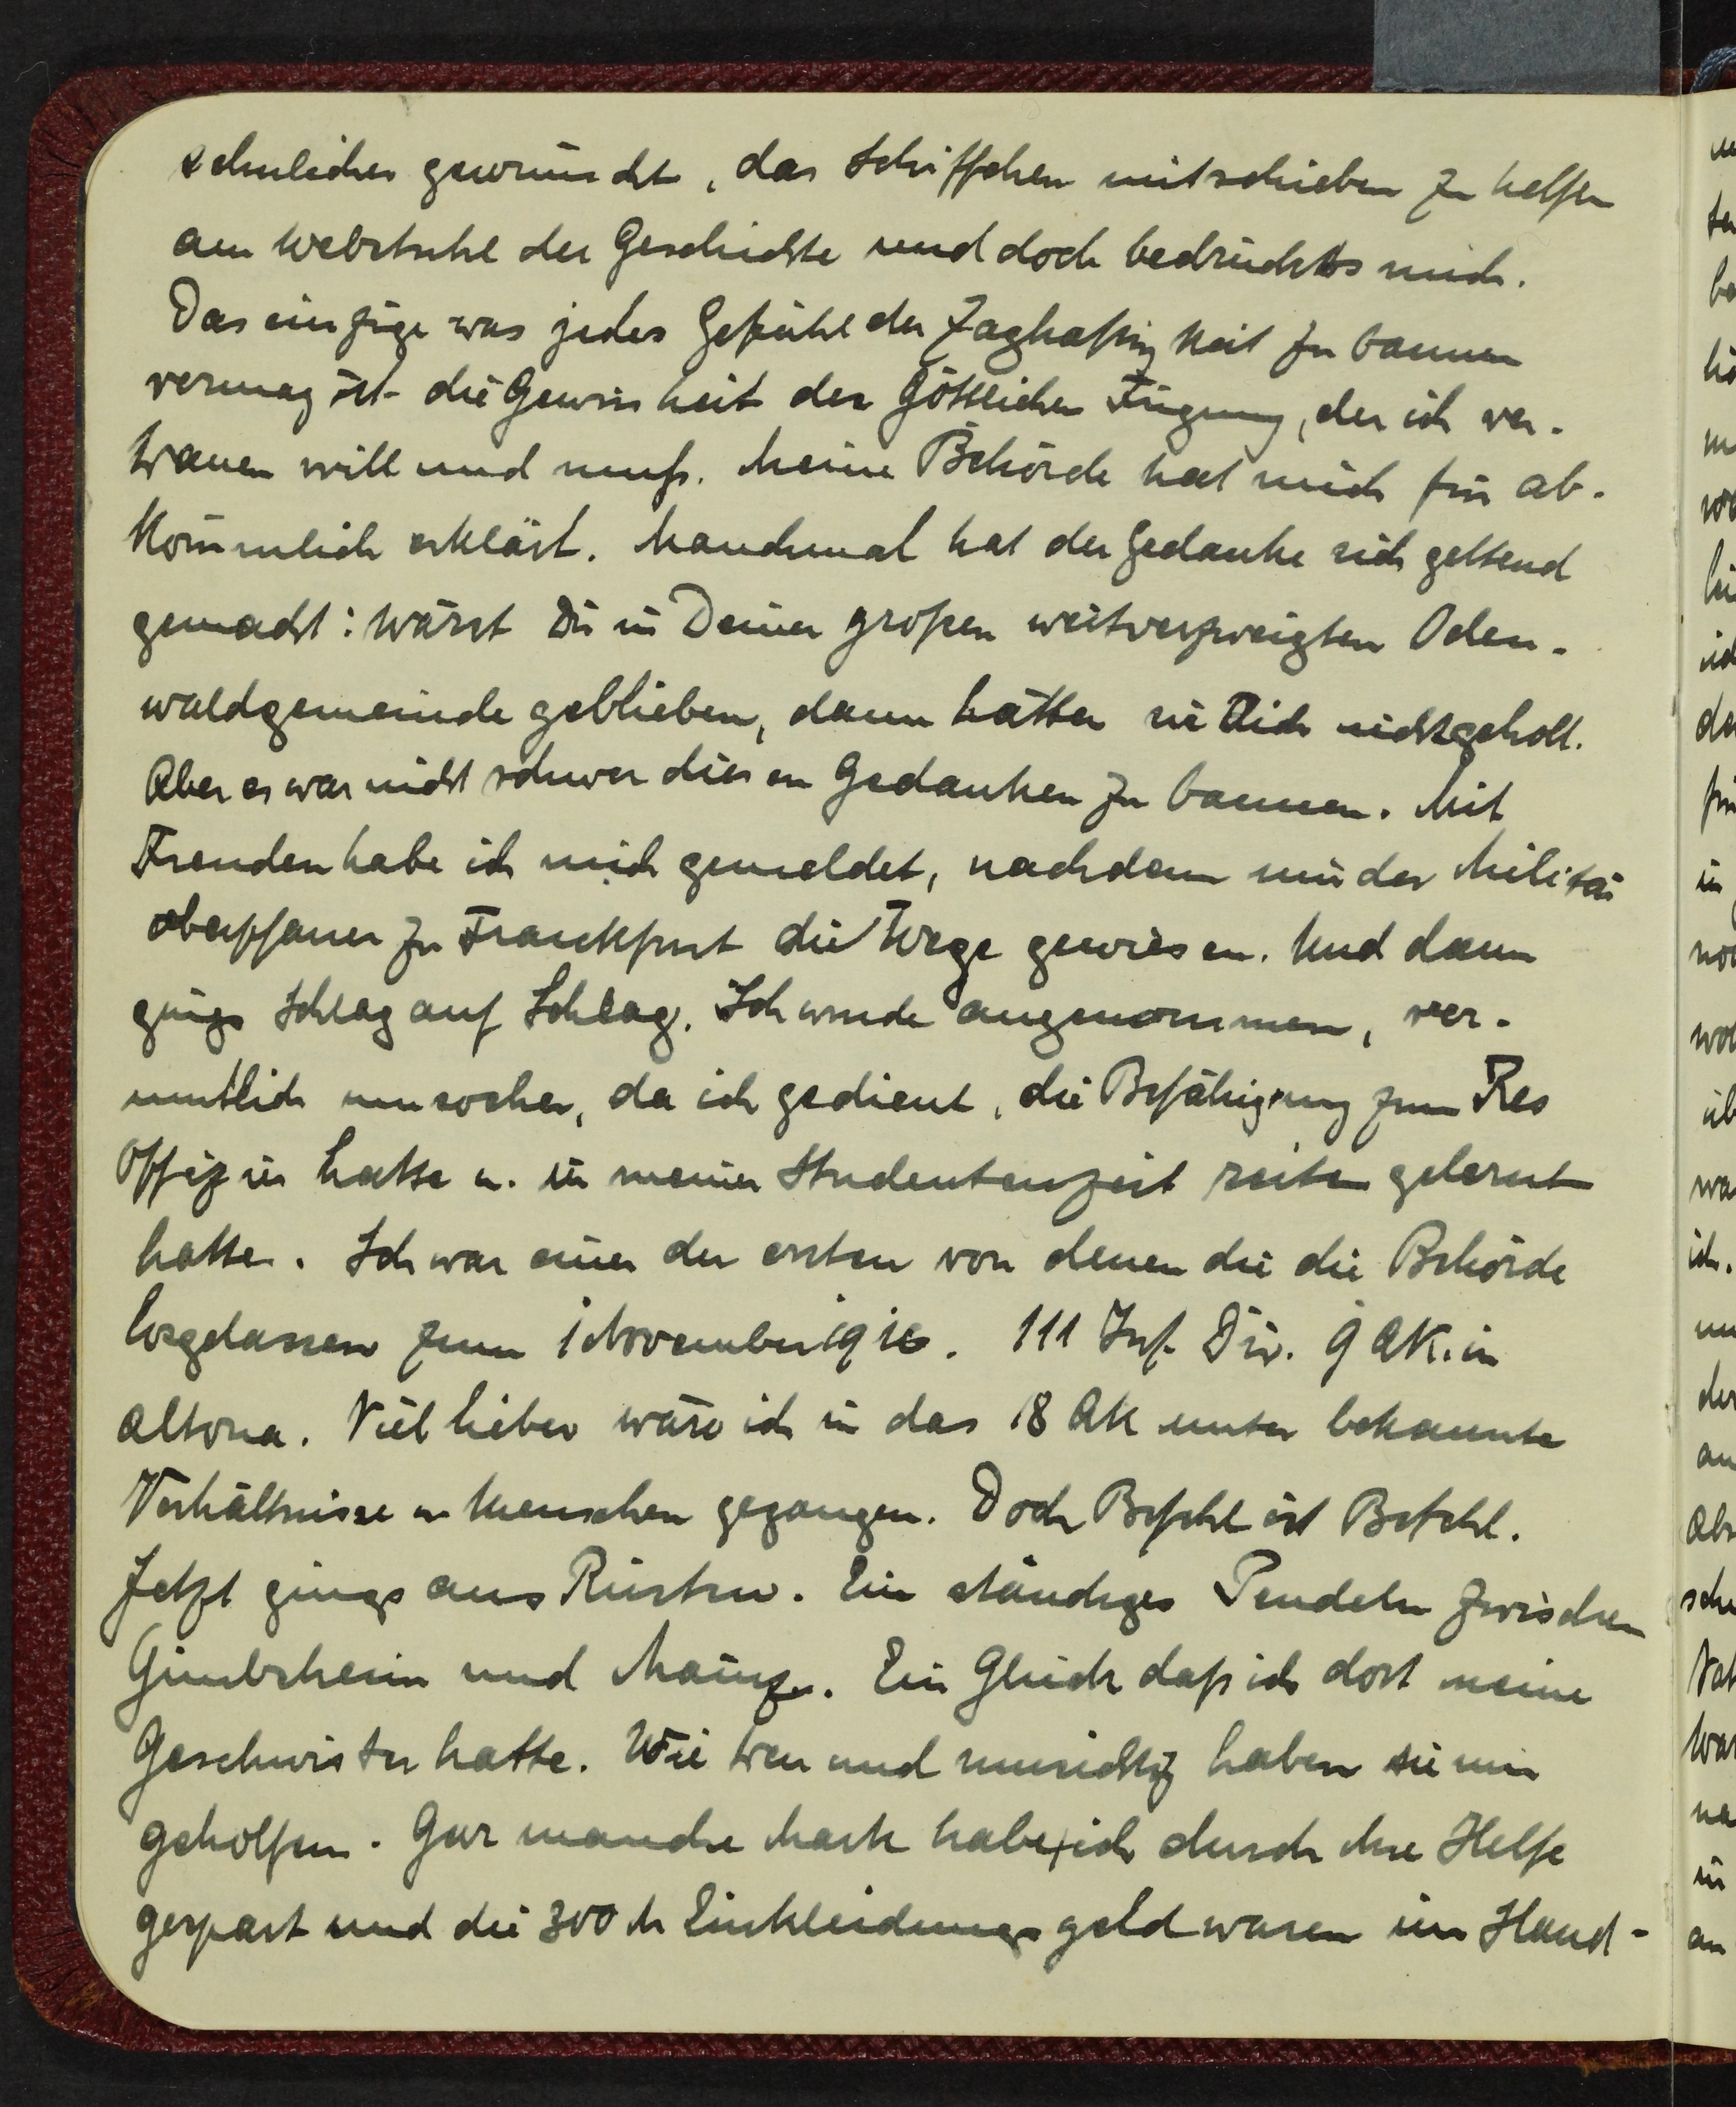 sehnlicher gewünscht, das Schiffchen mitschieben zu helfen
am Webstuhl der Geschichte und doch bedrückts mich.
Das einzige was jedes Gefühl der Zaghaftigkeit zu bannen
vermag ist die Gewissheit der Göttlichen Fügung, der ich ver-
trauen will und muß. Meine Behörde hat mich für ab-
kömmlich erklärt. Manchmal hat der Gedanke sich geltend
gemacht: wärst Du in Deiner großen weitverzweigten Oden-
waldgemeinde geblieben, dann hätten sie Dich nicht geholt.
Aber es war nicht schwer diesen Gedanken zu bannen. Mit
Freuden habe ich mich gemeldet, nachdem mir der Militär
oberpfarrer zu Frankfurt die Wege gewiesen. Und dann
gings Schlag auf Schlag. Ich wurde angenommen, ver-
mutlich umsoeher, da ich gedient, die Befähigung zum Res
Offizier hatte u. in meiner Studentenzeit reiten gelernt
hatte. Ich war einer der ersten von denen die die Behörde
losgelassen zum 1 November 1916. 111 Inf. Div. 9 AK. in
Altona. Viel lieber wäre ich in das 18 AK unter bekannte
Verhältnisse u Menschen gegangen. Doch Befehl ist Befehl.
Jetzt gings ans Rüsten. Ein ständiges Pendeln zwischen
Gimbsheim und Mainz. Ein Glück daß ich dort meine
Geschwister hatte. Wie treu und umsichtig haben sie mir
geholfen. Gar manche Mark habe ich durch ihre Helfe
gespart und die 300 M Einkleidungsgeld waren im Hand-